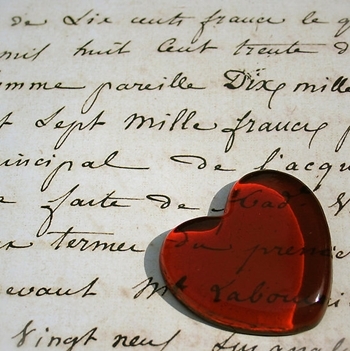 de Six cents francs le
mil huit Cent trente
somme pareille Dix mille
t Sept Mille francs
rincipal de l'acqu
faite de Mad. V
termes du premie
evant Me Labou
Vingt neuf